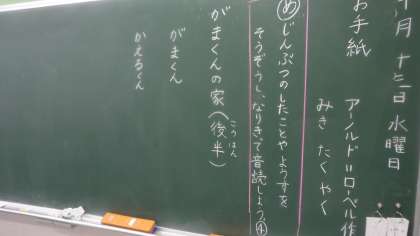 月 十三日 水曜日
お手紙
アーノルド＝ローベル作
みき たくやく
め じんぶつのしたことや ようすを
そうぞうし、なりきって音読しよう。④
がまくんの家（後半）
こうはん
がまくん
かえるくん